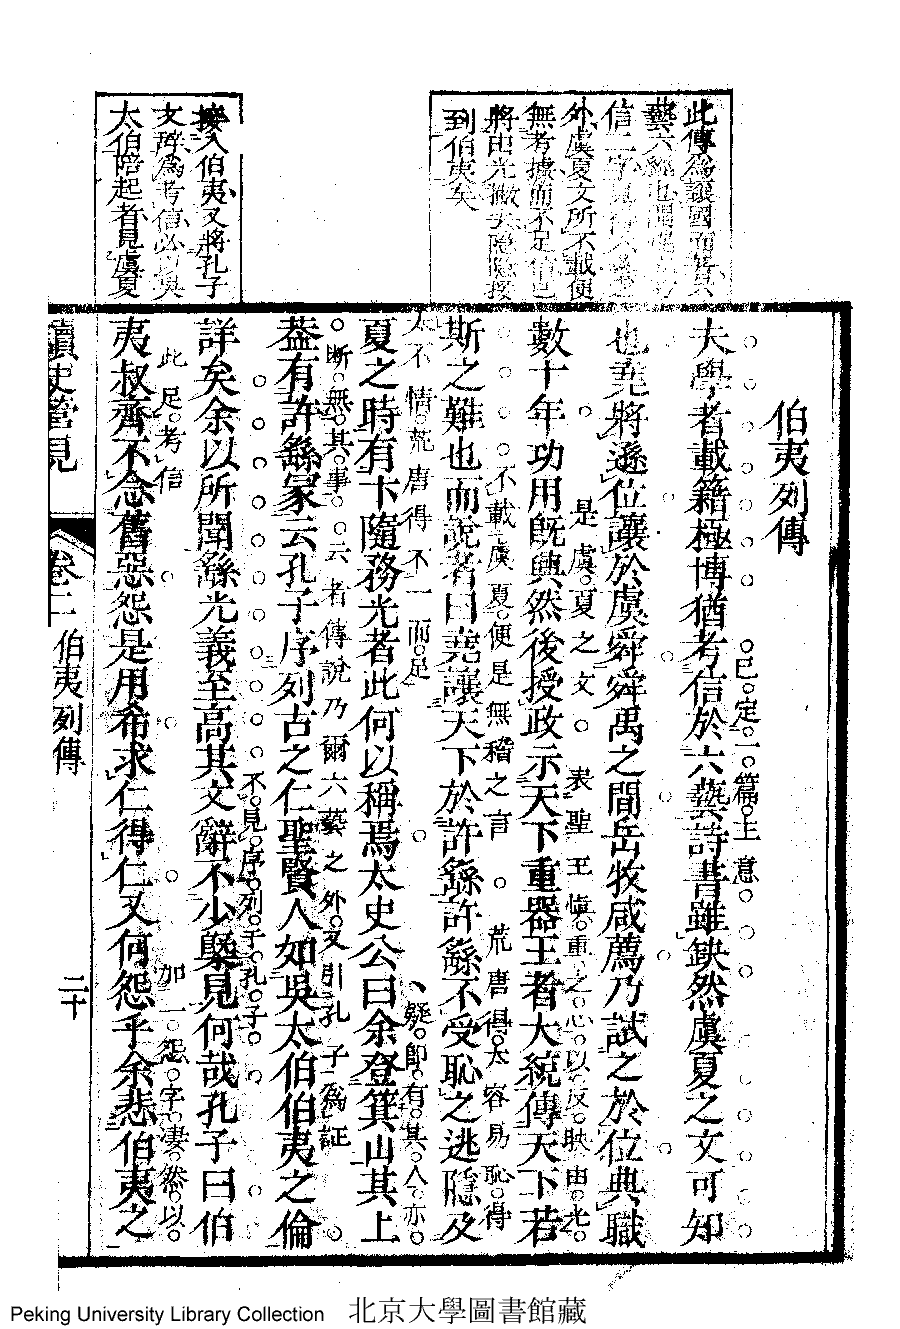 伯夷列傳
大學者載籍極博猶考信於六藝詩書雖缺然虞夏之文可知
已定一篇主意
也堯將遜位讓於虞舜舜禹之間岳牧咸薦乃試之於位典職
是虞夏之文
表聖王慎重之心以反映由光
數十年功用旣興然後授政示天下重器王者大統傳天下若
不載虞夏便是無稽之言
荒唐得太容易恥得
斯之難也而說者曰堯讓天下於許繇許繇不受恥之逃隱及
太不情荒唐得不一而足
疑卽有其人亦
夏之時有卞隨務光者此何以稱焉太史公曰余登箕山其上
斷無其事云者傳說乃爾六藝之外又引孔子爲證
葢有許繇冢云孔子序列古之仁聖賢人如吳太伯伯夷之倫
不見序列于孔子
詳矣余以所聞繇光義至高其文辭不少槩見何哉孔子曰伯
此足考信
加一怨字凄然以
夷叔齊不念舊惡怨是用希求仁得仁又何怨乎余悲伯夷之
此傳爲讓國而
藝六經也
信二字
外虞夏文所不載便
無考據而不足信也
將由光撇去隱隱接
到伯夷矣
接入伯夷又將孔子
文辭爲考信必以吳
太伯陪起者見虞夏
讀史管見
卷二
伯夷列傳
二十
Peking University Library Collection
北京大學圖書館藏